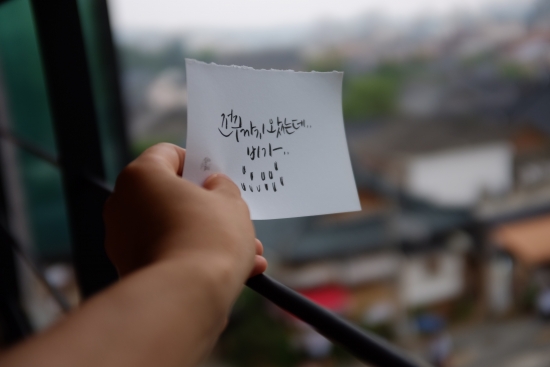 전주까지 왔는데..
비가..